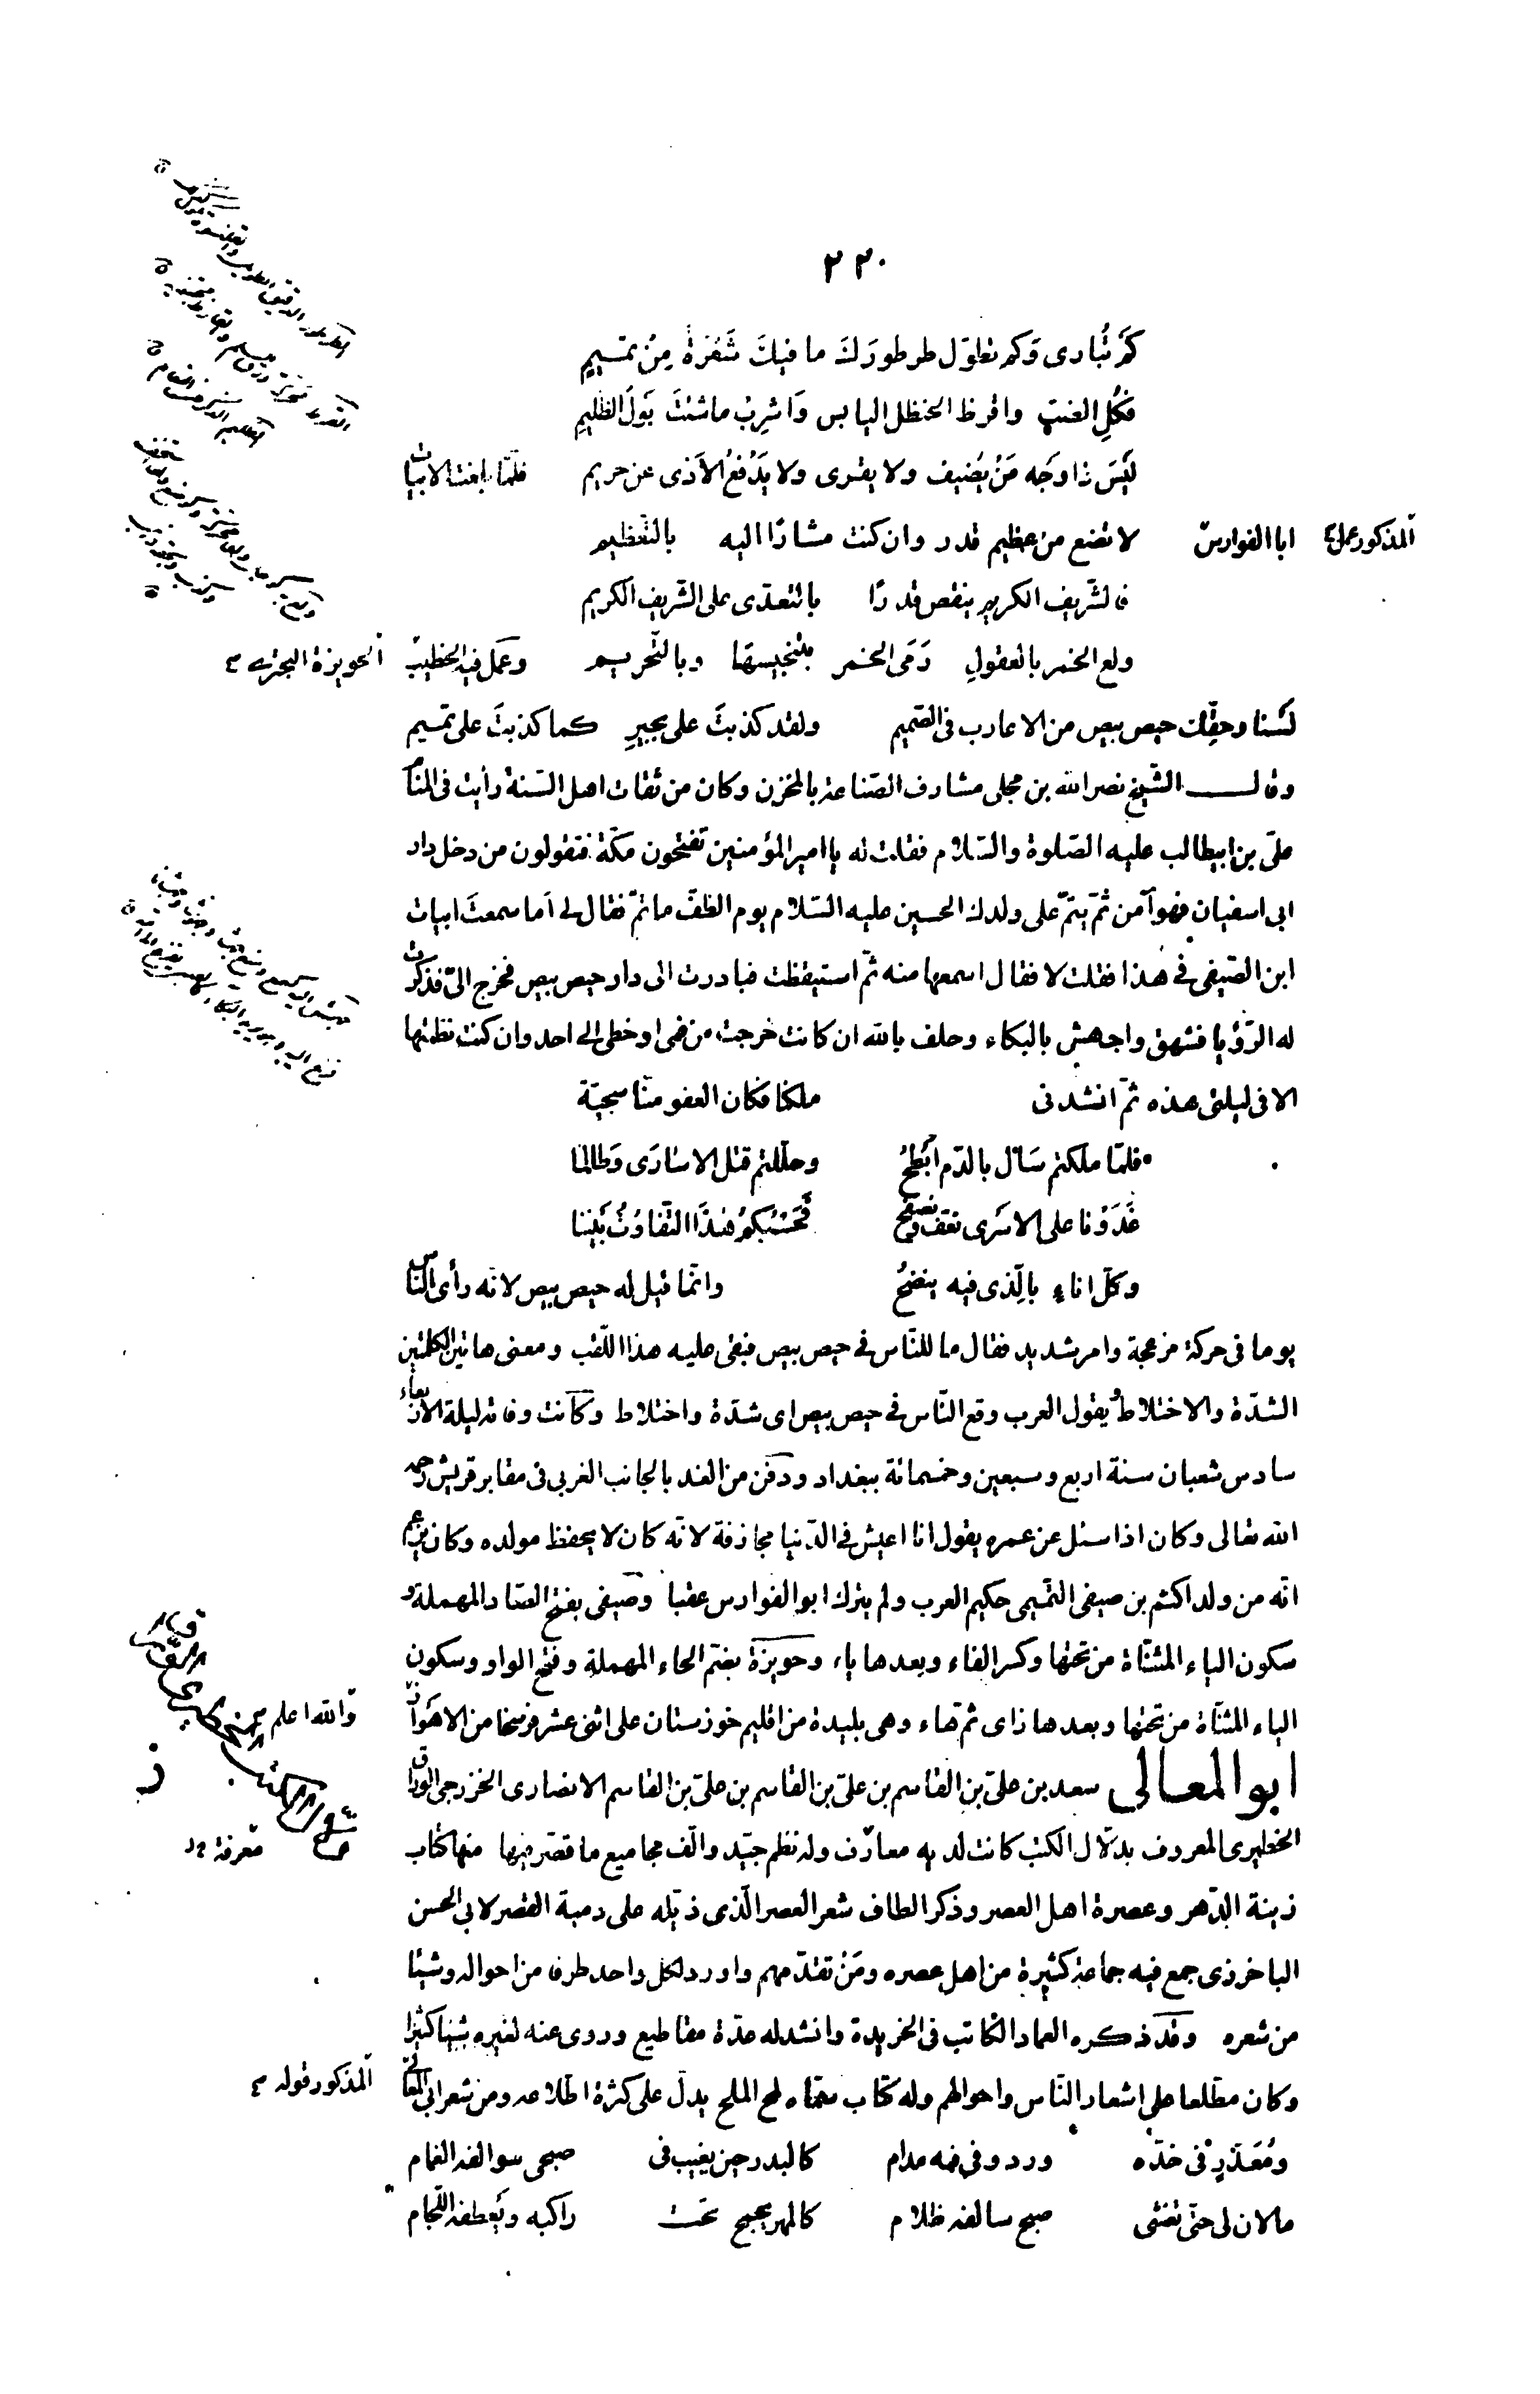 ٢٢٠
كَمْ تُبادى وَكم تطوّل طرطورَكَ ما فيكَ شَعْرَةٌ مِنْ تميمٍ
فَكُلِ الضبّ واقرظ الحنظل اليابس وَاشرِبْ ماشئتَ بَولَ الظليمِ
لَيْسَ ذا وجْه مَنْ يُضيف ولا يقرى ولا يَدْفعُ الأَذى عن حريم فلمّا بلغت الابيات
ابا الفوارس المذكور عمل
لا تضع من عظيم قدر وان كنت مشارًا اليه بالتّعظيم
فالشّريف الكريم ينقص قدرًا بالتعدّى على الشّريف الكريم
ولع الخمر بالعقولِ رَمَى الخمر بتنجيسها وبالتّحريم وعمل فيه الخطيب
الحويزة البحترى
لَسْنا وحقّك حيص بيص من الاعارب فى الصّميم ولقد كذبتَ على بجيرِ كما كذبتَ على تميم
وقال الشّيخ نصرالله بن مجلى مشارف الصّناعة بالمخزن وكان من ثقات اهل السّنة رأيت فى المنام
علىّ بن ابيطالب عليه الصّلوة والسّلام فقلت له يا امير المؤمنين تفتحون مكّة فتقولون من دخل دار
ابى اسفيان فهو آمن ثمّ يتمّ على ولدك الحسين عليه السّلام يوم الطّف ما تمّ فقال لى أما سمعتَ ابيات
ابن الصّيفى فى هذا فقلت لا فقال اسمعها منه ثمّ استيقظت فبادرت الى دار حيص بيص فخرج الىّ فذكرت
له الرّؤيا فشهق واجهش بالبكاء وحلف بالله ان كانت خرجت من فمى او خطى الى احد وان كنت نظمتها
الا فى ليلتى هذه ثمّ انشدنى ملكنا فكان العفو منّا سجيّة
فلمّا ملكتم سَالَ بالدّم أَبْطَحُ وحلّلتم قتل الاسارَى وَطالما
غَدَوْنا على الاسْرى نعَفّ ونصفح فَحَسْبُكمُ هذَا التّفاوُتُ بَيننا
وكلّ اناءٍ بالّذى فيه ينضحُ وانّما قيل له حيص بيص لانّه رأى النّاس
يوما فى حركة مزعجة وامر شديد فقال ما للنّاس فى حيص بيص فبقى عليه هذا اللّقب ومعنى هاتين الكلمتين
الشدّة والاختلاط يقول العرب وقع النّاس فى حيص بيص اى شدّة واختلاط وكانت وفاته ليلة الاربعاء
سادس شعبان سنة اربع وسبعين وخمسمائة ببغداد ودفن من الغد بالجانب الغربى فى مقابر قريش رحمه
الله تعالى وكان اذا سئل عن عمره يقول انا اعيش فى الدّنيا مجازفة لانّه كان لا يحفظ مولده وكان يزعم
انّه من ولد اكثم بن صيفى التّميمى حكيم العرب ولم يترك ابو الفوارس عقبا وصيفى بفتح الصّاد المهملة و
سكون الياء المثنّاة من تحتها وكسر الفاء وبعدها ياء وحويزة بضمّ الحاء المهملة وفتح الواو وسكون
الياء المثنّاة من تحتها وبعدها زاى ثم هاء وهى بليدة من اقليم خوزستان على اثنى عشر فرسخا من الاهواز
والله اعلم
ابو المعالى سعد بن علىّ بن القاسم بن علىّ بن القاسم بن علىّ بن القاسم الانصارى الخزرجى الورّاق
الخطيرى المعروف بدلّال الكتب كانت لديه معارف وله نظم جيّد والّف مجاميع ما قصّر فيها منها كتاب
معرفة
زينة الدّهر وعصرة اهل العصر وذكر الطاف شعر العصر الّذى ذيّله على دمية القصر لابى الحسن
الباخرزى جمع فيه جماعة كثيرة من اهل عصره ومَنْ تقدّمهم واورد لكل واحد طرف من احواله وشيئا
من شعره وقد ذكره العماد الكاتب فى الخريدة وانشد له عدّة مقاطيع وروى عنه لغيره شيئا كثيرا
وكان مطّلعا على اشعار النّاس واحوالهم وله كتاب سمّاه لمح الملح يدلّ على كثرة اطّلاعه ومن شعر ابى المعالى
المذكور قوله
ومُعَذّرٍ فى خدّه ورد وفى فمه مدام كالبدر حين يغيب فى صبحى سوالفه الغمام
ما لان لى حتّى تغشّى صبح سالفه ظلام كالمهر يجمح تحت راكبه ويَعطفه اللّجام